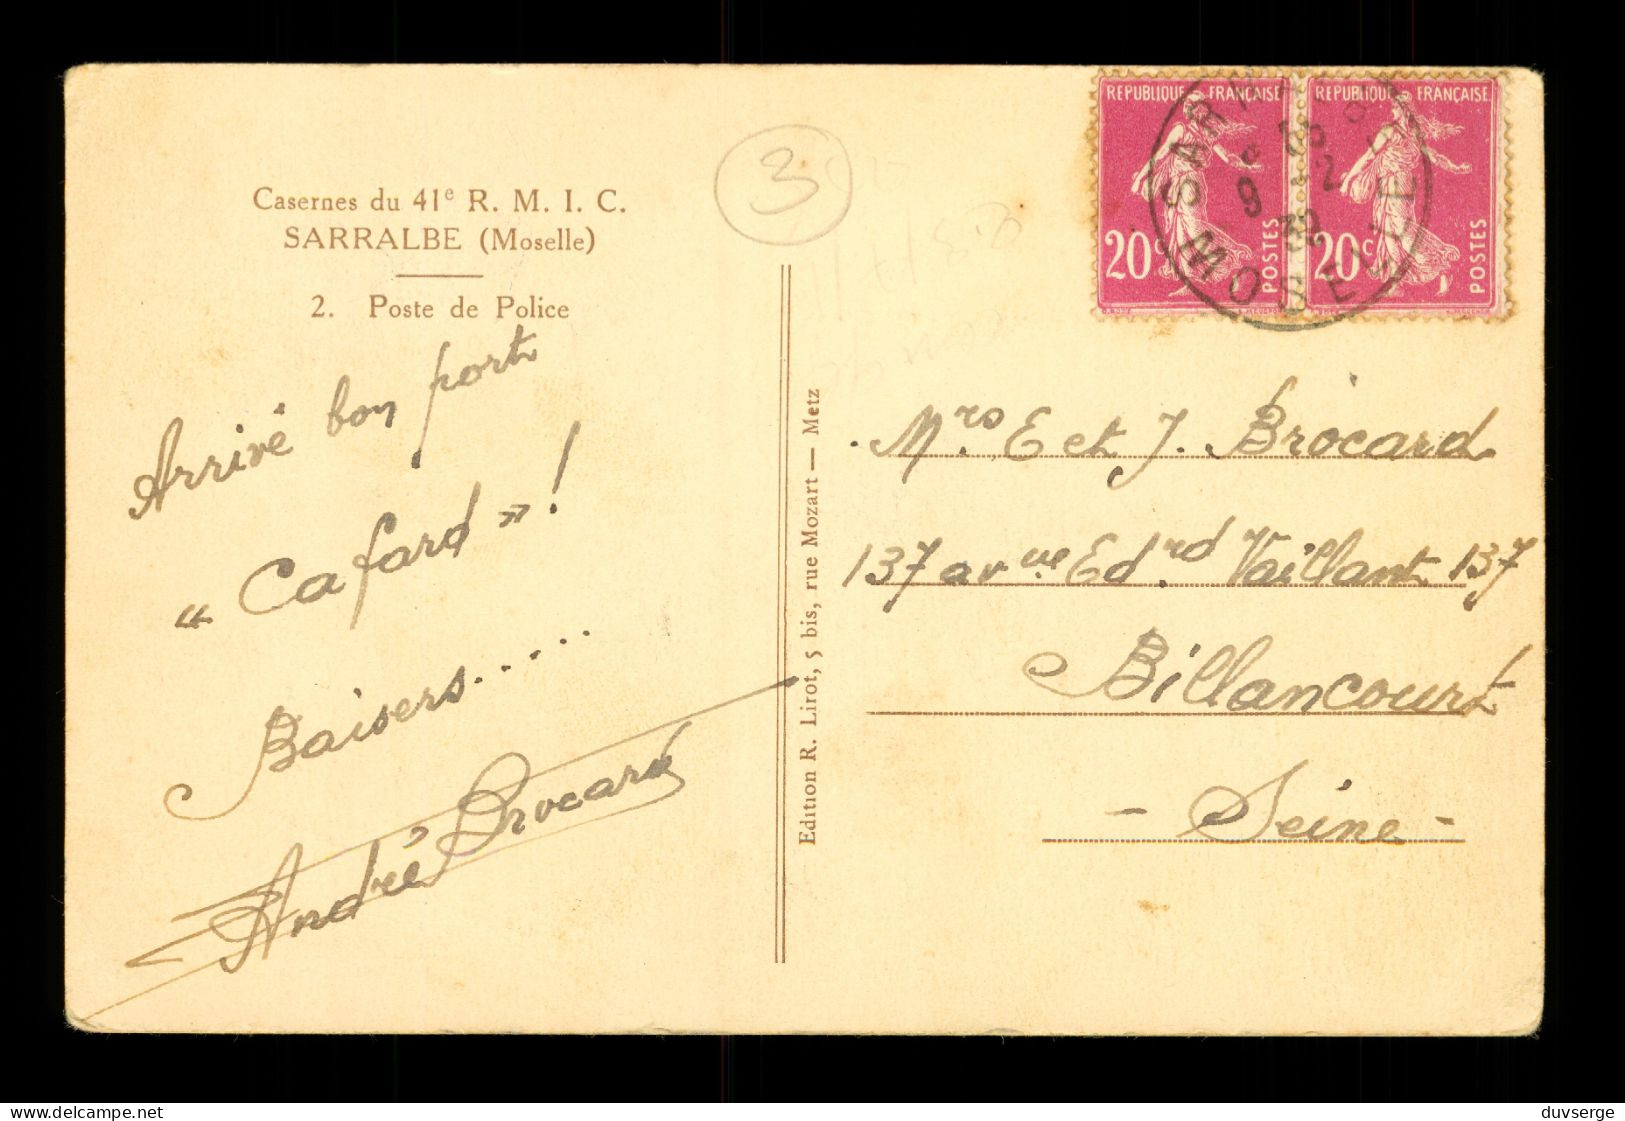 Casernes du 41e R. M. I. C.
SARRALBE (Moselle)
2. Poste de Police
Arrivé bon port
« Cafard » !
Baisers.....
André Brocard
3
Edition R. Lirot, 5 bis, rue Mozart — Metz
REPUBLIQUE FRANÇAISE
20c
POSTES
REPUBLIQUE FRANÇAISE
20c
POSTES
MOSELLE
Mrs E et J. Brocard
137 avnue Edrd Vaillant 137
Billancourt
- Seine -
delcampe.net
duvserge